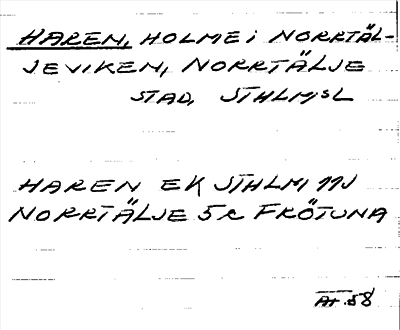 HAREN, HOLME i NORRTÄL-
JEVIKEN, NORRTÄLJE
STAD, STHLMSL
HAREN EK STHLM 11J
NORRTÄLJE 5 c FRÖTUNA
AT. 58